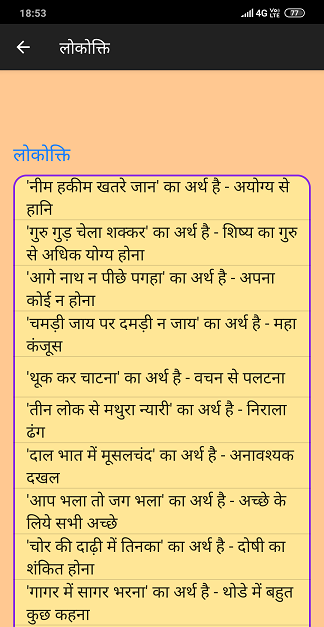 18:53
4G Vo) LTE 77
लोकोक्ति
लोकोक्ति
'नीम हकीम खतरे जान' का अर्थ है - अयोग्य से
हानि
'गुरु गुड़ चेला शक्कर' का अर्थ है - शिष्य का गुरु
से अधिक योग्य होना
'आगे नाथ न पीछे पगहा' का अर्थ है - अपना
कोई न होना
'चमड़ी जाय पर दमड़ी न जाय' का अर्थ है - महा
कंजूस
'थूक कर चाटना' का अर्थ है - वचन से पलटना
'तीन लोक से मथुरा न्यारी' का अर्थ है - निराला
ढंग
'दाल भात में मूसलचंद' का अर्थ है - अनावश्यक
दखल
'आप भला तो जग भला' का अर्थ है - अच्छे के
लिये सभी अच्छे
'चोर की दाढ़ी में तिनका' का अर्थ है - दोषी का
शंकित होना
'गागर में सागर भरना' का अर्थ है - थोडे में बहुत
कुछ कहना